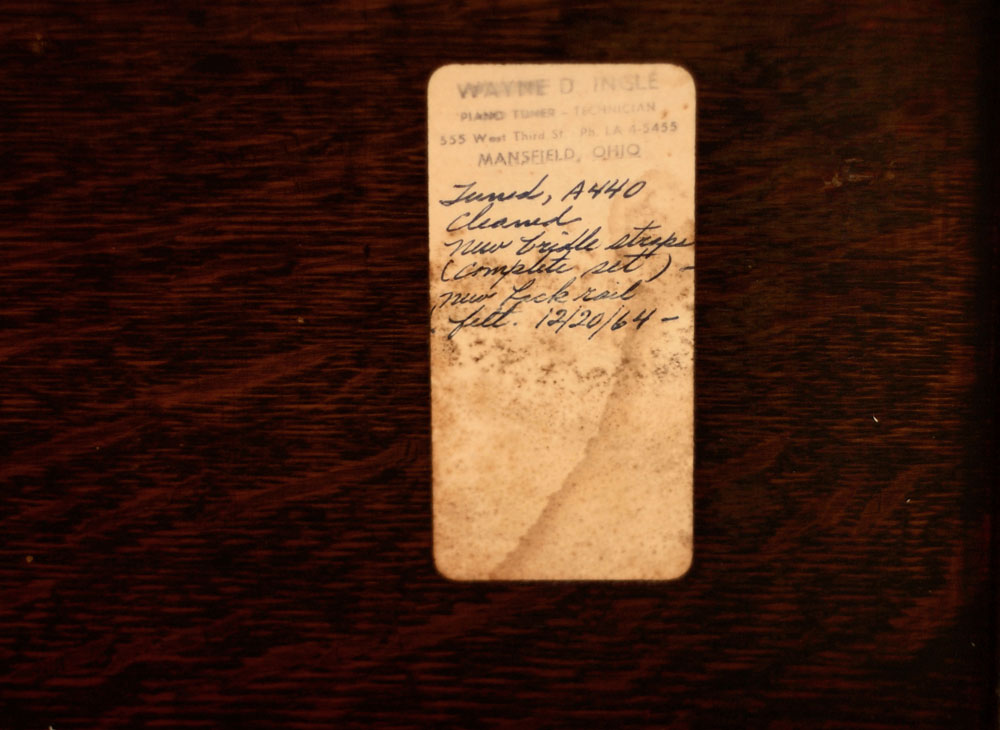 WAYNE D. INGLE
PIANO TUNER - TECHNICIAN
555 West Third St. Ph. LA 4-5455
MANSFIELD, OHIO
Tuned, A440
Cleaned
new bridle straps
(complete set) -
new back rail
felt. 12/20/64 -